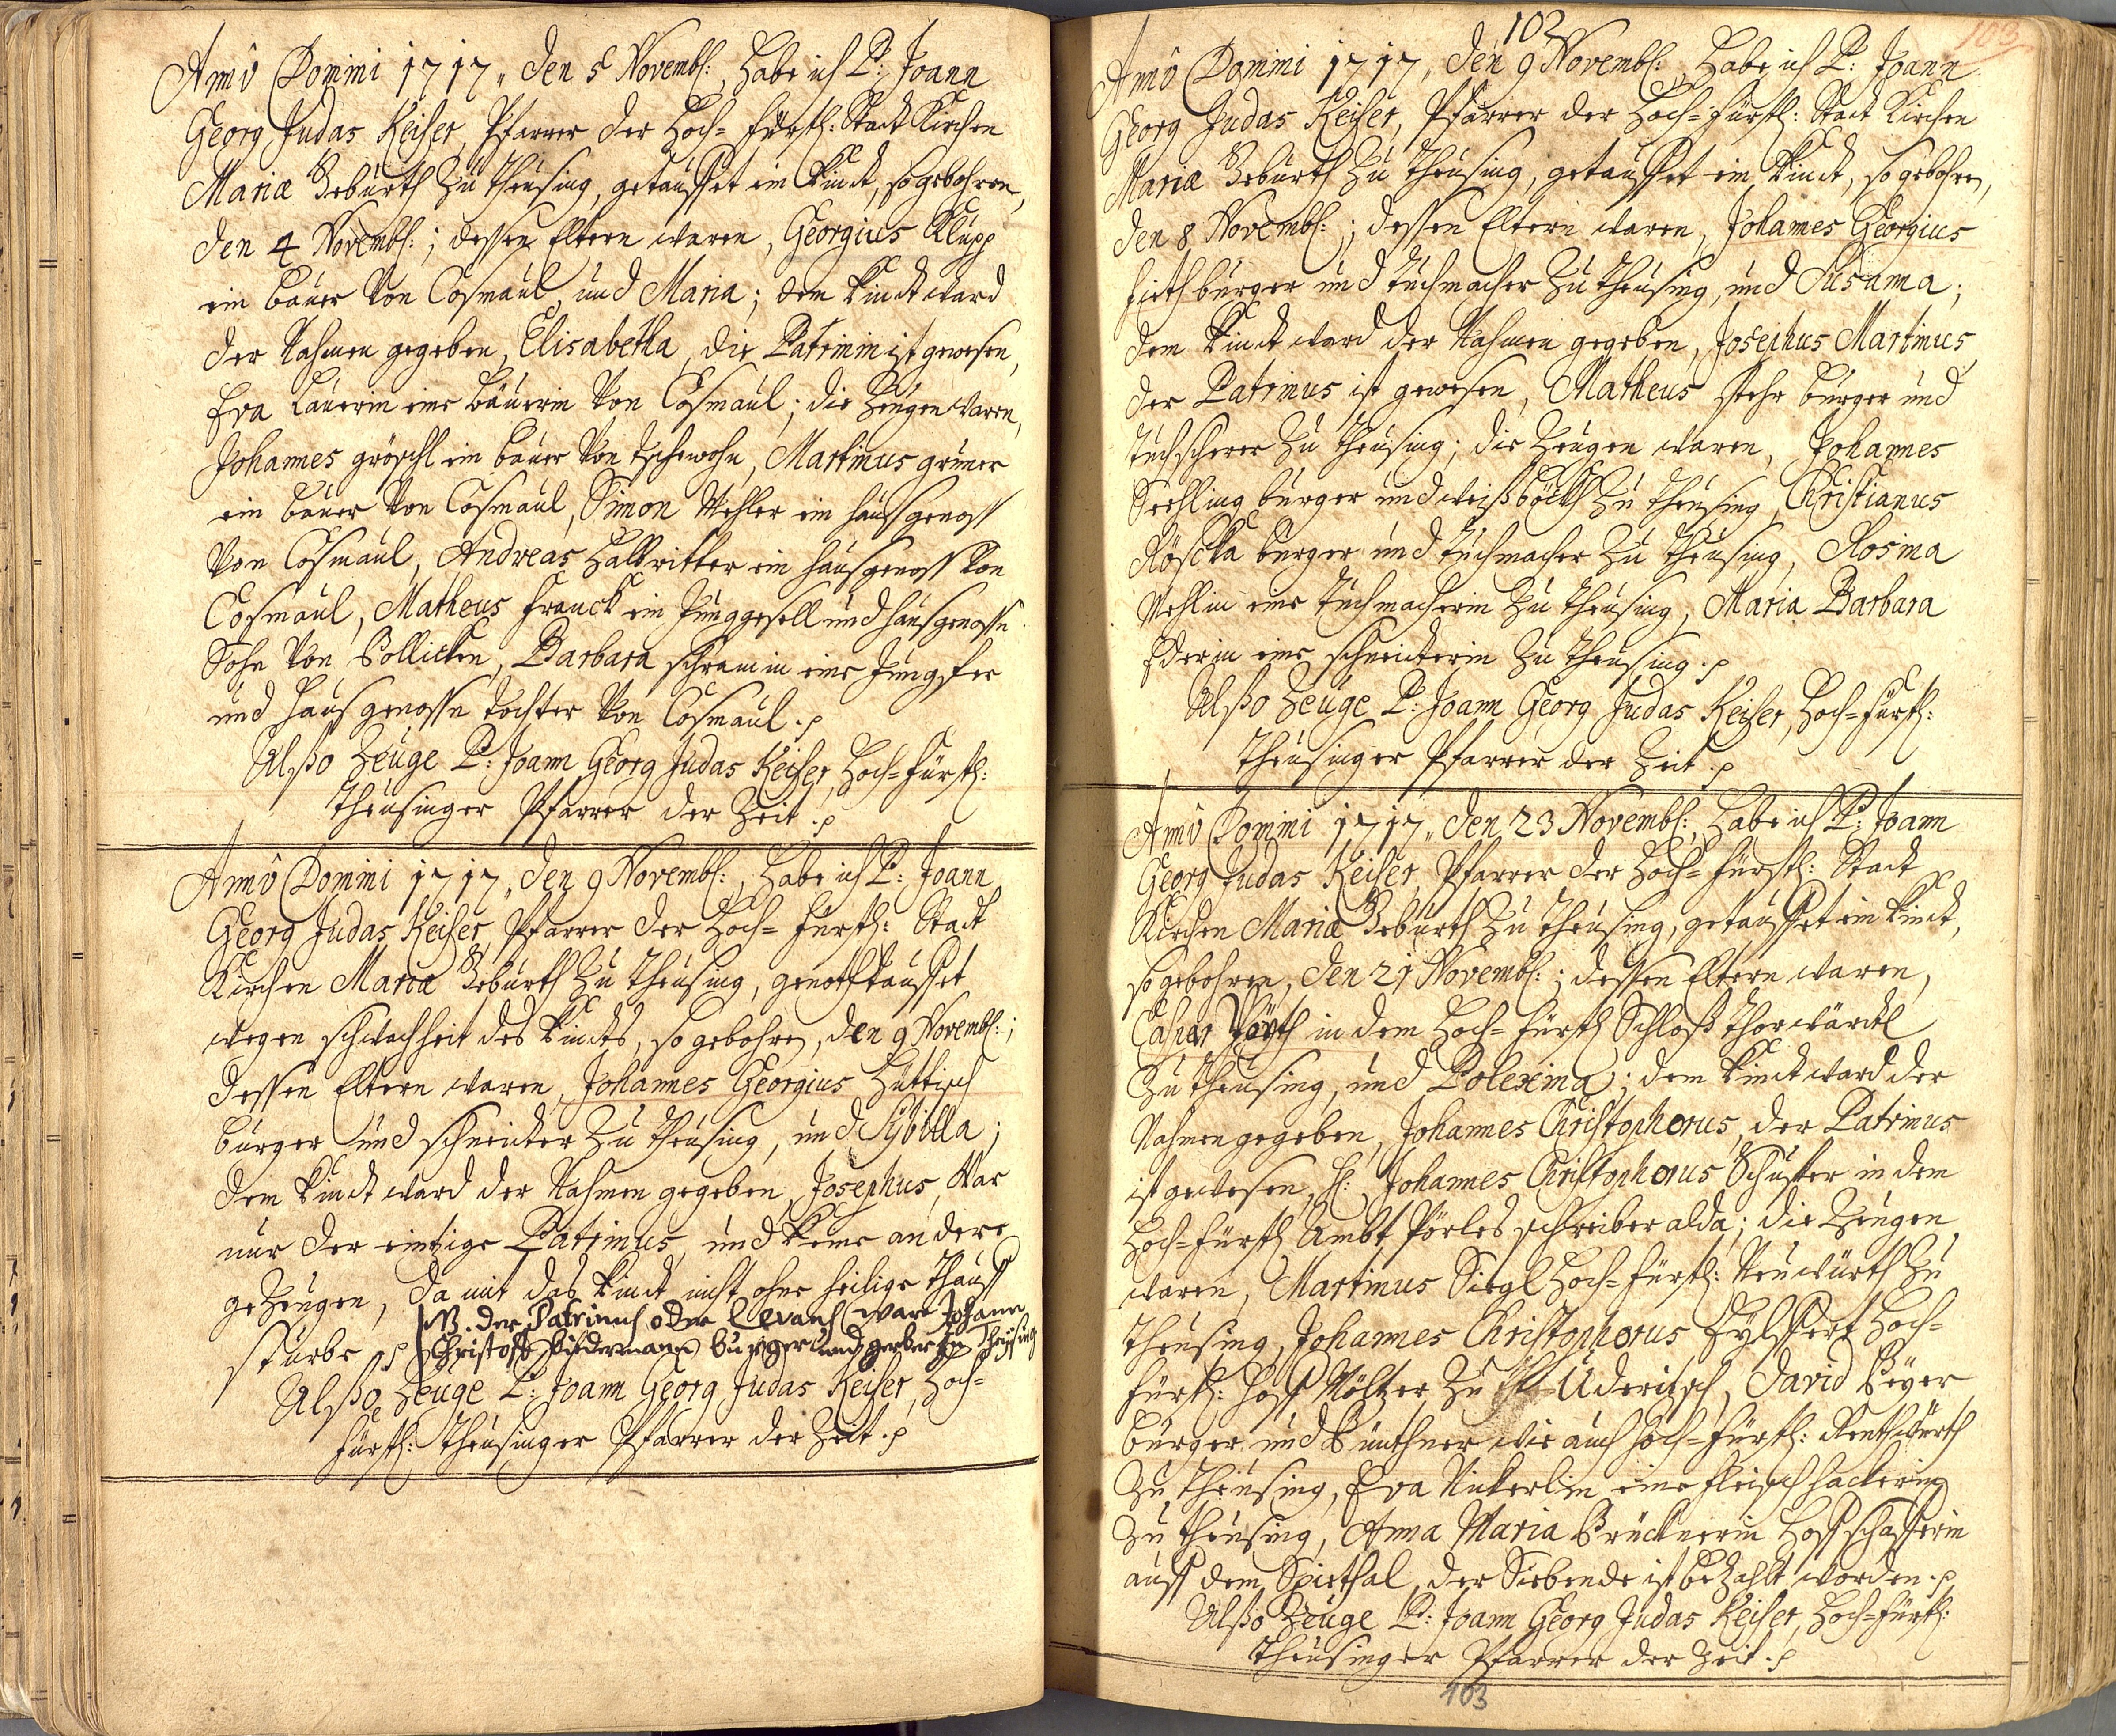 Annô Domini 1717, den 5 Novembl:, Habe ich P: Joann
Georg Judas Keiser, Pfarrer der Hoch=Fürstl: Stadt Kirchen
Mariæ Geburth Zu Theusing, getauffet ein Kindt, so gebohren,
den 4 Novembl:; dessen Eltern waren, Georgius Klupp
ein bauer von Cosmaul, und Maria; dem Kindt ward
der Nahmen gegeben, Elisabetha, die Patrinin ist gewesen,
Eva Lauerin eine bäuerin von Cosmaul; die Zeugen waren,
Johannes gröschl ein bauer von tschewohn, Martinus grüner
ein bauer von Cosmaul, Simon Mehler ein haussgenoss
von Cosmaul, Andreas Halbritter ein haussgenoss von
Cosmaul, Matheus Franck ein Junggesell und haussgenossn
Sohn von Pollicken, Barbara schramin eine Jungfer
und haussgenossn tochter von Cosmaul .p
Alßo Zeuge P: Joann Georg Judas Keiser, Hoch=Fürstl:
Theusinger Pfarrer der Zeit .p
Annô Domini 1717, den 9 Novembl:, Habe ich P: Joann
Georg Judas Keiser, Pfarrer der Hoch=Fürstl: Stadt
Kirchen Mariæ Geburth Zu Theusing, genothtauffet
wegen schwachheit des Kindts, so gebohren, den 9 Novembl:;
dessen Eltern waren, Johannes Georgius Hüttisch
burger und schneider Zu Theusing, und Sybilla;
dem Kindt ward der Nahmen gegeben, Josephus, War
nur der eintzige Patrinus, und keine andere
geZeugen, da mit das Kindt nicht ohne heilige Thauff
sturbe .p
NB. der Patrinus oder Levans ware Johann
Christoff Bidermann burger und gerber zu Theusing
Alßo Zeuge P: Joann Georg Judas Keiser, Hoch=
Fürstl: Theusinger Pfarrer der Zeit .p
102
103
Annô Domini 1717, den 9 Novembl:, Habe ich P: Joann
Georg Judas Keiser, Pfarrer der Hoch=Fürstl: Stadt Kirchen
Mariæ Geburth Zu Theusing, getauffet ein Kindt, so gebohren,
den 8 Novembl:; dessen Eltern waren, Johannes Georgius
burger und tuchmacher Zu Theusing, und Susanna;
dem Kindt ward der Nahmen gegeben, Josephus Martinus,
der Patrinus ist gewesen, Matheus burger und
tuchscherer Zu Theusing; die Zeugen waren, Johannes
burger und weißböckh Zu Theusing, Christianus
Röscka burger und tuchmacher Zu Theusing, Rosina
Mehlin eine tuchmacherin Zu Theusing, Maria Barbara
Ederin eine schneiderin Zu Theusing .p
Alßo Zeuge P: Joann Georg Judas Keiser, Hoch=Fürstl:
Theusinger Pfarrer der Zeit .p
Annô Domini 1717, den 23 Novembl:, Habe ich P: Joann
Georg Judas Keiser, Pfarrer der Hoch=Fürstl: Stadt
Kirchen Mariæ Geburth Zu Theusing, getauffet ein Kindt,
so gebohren, den 21 Novembl:; dessen Eltern waren,
Caspar in dem Hoch=Fürstl Schloß thorwärtl
Zu Theusing, und Polexina; dem Kindt ward der
Nahmen gegeben, Johannes Christophorus, der Patrinus
ist gewesen, H: Johannes Christophorus Schuster in dem
Hoch=Fürstl Ambt schreiber alda; die Zeugen
waren, Martinus Siegl Hoch=Fürstl: Neuwürth Zu
Theusing, Johannes Christophorus Hoch=
Fürstl: Hoff Mältzer Zu Uderitsch, David Beyer
burger und Binthner wie auch Hoch=Fürstl:
Zu Theusing, Eva eine fleischhackerin
Zu Theusing, Anna Maria Brücknerin Hoffschafferin
auss dem Spiethal, der Siebende ist beZahlt worden .p
Alßo Zeuge P: Joann Georg Judas Keiser, Hoch=Fürstl:
Theusinger Pfarrer der Zeit .p
103